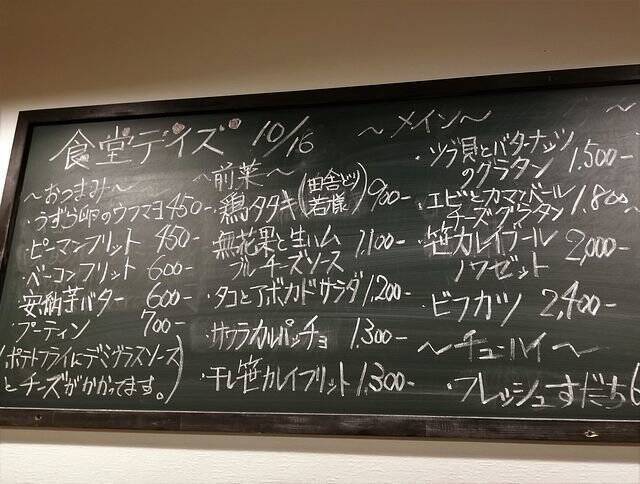 食堂デイズ 10/16
~おつまみ~
・うずら卵のウフマヨ 450-
・ピーマンフリット 450-
・ベーコンフリット 600-
・安納芋バター 600-
・プーティン 700-
(ポテトフライにデミグラスソース
とチーズがかかってます。)
~前菜~
・鶏タタキ(田舎どり 若様) 900-
・無花果と生ハム 1,100-
ブルーチーズソース
・タコとアボカドサラダ 1,200-
・サワラカルパッチョ 1,300-
・干し笹カレイフリット 1,300-
~メイン~
・ツブ貝とバターナッツ
のグラタン 1,500-
・エビとカマンベール
チーズグラタン 1,800-
・笹カレイブール 2,000-
ノワゼット
・ビフカツ 2,400-
~チューハイ~
・フレッシュすだち 6